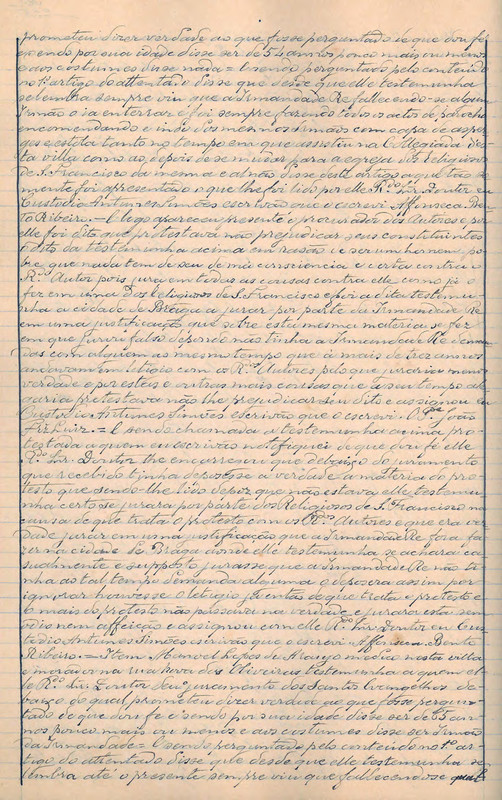 prometeu dizer verdade ao que fosse perguntado de que dou fé
e sendo por sua idade disse ser de 54 annos pouco mais ou menos
e aos costumes disse nada = E sendo perguntado pelo conteudo
no 1º artigo do attentado disse que desde que elle testemunha
se lembra sempre viu que a Irmandade Re fallecendo-se algum
Irmão o ia enterrar e foi sempre fazendo todos os actos de parocho
encomendando e indo dos mesmos Irmãos com capa de asper-
ges e estola tanto no tempo em que assistiu na Collegiada des-
ta villa como ao depois de se mudar para a egreja dos Religiosos
de S. Francisco da mesma e al não disse deste artigo a que tão so-
mente foi apresentado o que lhe foi lido por elle Rdo Snr. Doutor eu
Custodio Antunes Simões escrivão que o escrevi. Affonseca. Ben-
to Ribeiro. = E logo appareceu presente o procurador dos Autores e por
elle foi dito que protestava não prejudicar seus constituintes
o dito da testemunha acima em rasão de ser um homem po-
bre, que nada tem de seu de má consciencia e certa contra o
Rº Autor pois jura em todas as causas contra elle como já o
fez em uma dos Religiosos de S. Francisco e fora a dita testemu-
nha a cidade de Braga a jurar por parte da Irmandade Re
em uma justificação que sobre esta mesma materia se fez
em que jurou falso depondo não tinha a Irmandade Re deman-
das com alguem ao mesmo tempo que á mais de tres annos
andavam em letigio com os Rdos Autores pelo que juraria menos
verdade e por estas e outras mais cousas que a seu tempo ale-
garia protestava não lhe prejudicar seu dito e assignou eu
Custodio Antunes Simões escrivão que o escrevi. O Pe João
Frz Luiz. = E sendo chamada a testemunha acima pro-
testada a quem eu escrivão notifiquei de que dou fé elle
Rdo Snr. Doutor lhe encarregou que debaixo do juramento
que recebido tinha depozesse a verdade a materia do pro-
testo que sendo-lhe lido depoz que não estava elle testemu-
nha certo se jurara por parte dos Religiosos de S. Francisco na
causa de que trata o protesto com os Rdos Autores e que era ver-
dade jurar em uma justificação que a Irmandade Re fora fa-
zer na cidade de Braga aonde elle testemunha se achara ca-
sualmente e supposto jurasse que a Irmandade Re não ti-
nha ao tal tempo demanda alguma o depozera assim por
ignorar houvesse o letigio pendente de que trata o protesto e
o mais do protesto não passava na verdade e jurara esta sem
odio nem affeição e assignou com elle Rdo Snr. Doutor eu Cus-
todio Antunes Simões escrivão que o escrevi. Affonseca. Bento
Ribeiro. = Item Manoel Lopes de Araujo medico nesta villa
e morador na rua nova das Oliveiras testemunha a quem el-
le Rdo Snr. Doutor deu juramento dos Santos Evangelhos de-
baixo do qual prometeu dizer verdade ao que fosse pergun-
tado de que dou fé e sendo por sua idade disse ser de 55 an-
nos pouco mais ou menos e aos costumes disse ser Irmão
da Irmandade = E sendo perguntado pelo conteudo no 1º ar-
tigo do attentado disse que desde que elle testemunha se
lembra até o presente sempre viu que fallecendo se qual-